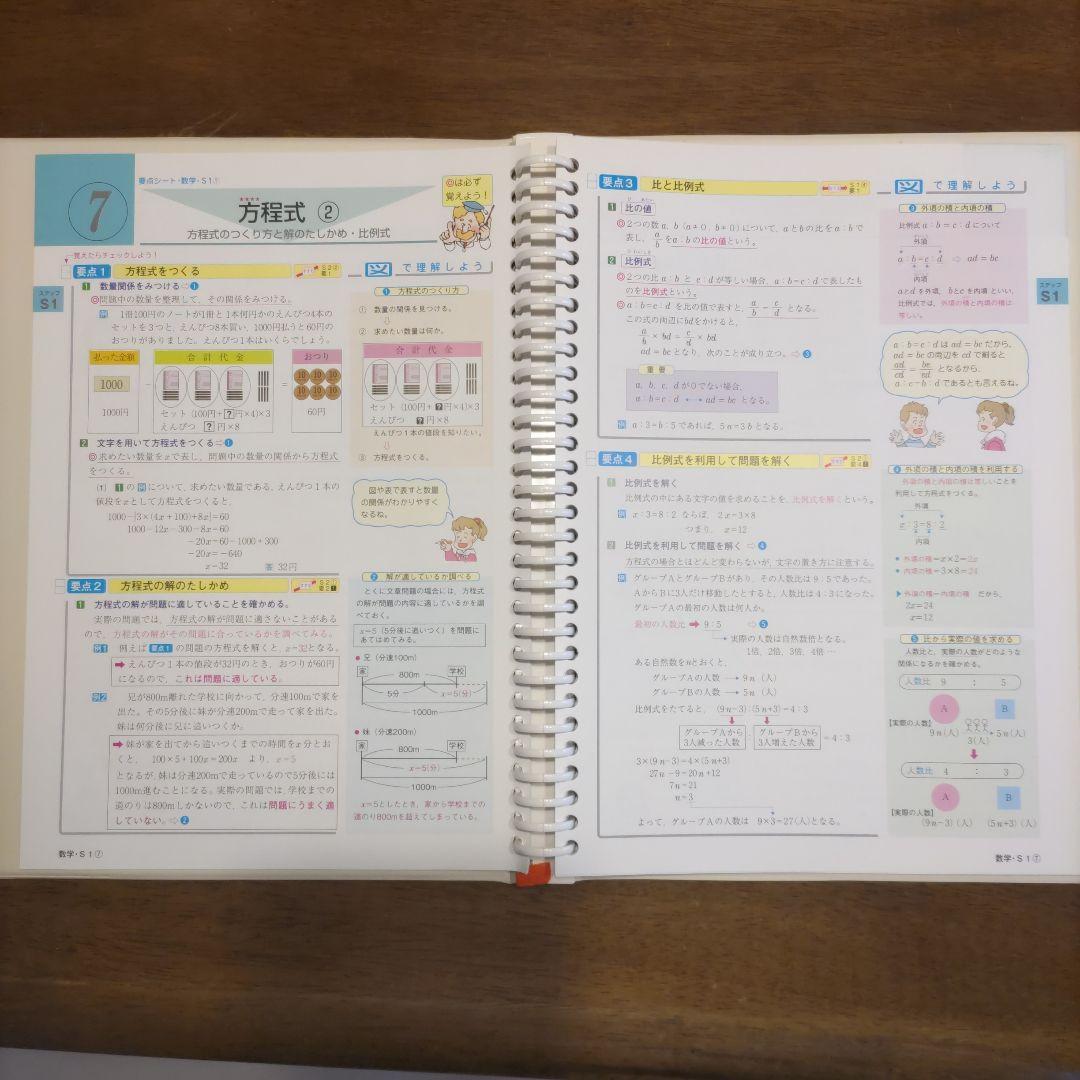 7
要点シート・数学・S1⑦
方程式 ②
方程式のつくり方と解のたしかめ・比例式
◎は必ず
覚えよう！
覚えたらチェックしよう！
ステップ
S1
要点1 方程式をつくる
1 数量関係をみつける⇨❶
◎問題中の数量を整理して，その関係をみつける。
例 1冊100円のノートが1冊と1本何円かのえんぴつ4本の
セットを3つと，えんぴつ8本買い，1000円払うと60円の
おつりがありました。えんぴつ1本はいくらでしょう。
払った金額 合計代金 おつり
1000
－
＝
10 10 10
10 10 10
1000円
セット (100円+?円×4)×3
えんぴつ ?円×8
60円
2 文字を用いて方程式をつくる⇨❶
◎求めたい数量をxで表し，問題中の数量の関係から方程式
をつくる。
(1) 1の例について，求めたい数量である，えんぴつ1本の
値段をxとして方程式をつくると，
1000-{3×(4x+100)+8x}=60
1000-12x-300-8x=60
-20x=60-1000+300
-20x=-640
x=32 答 32円
図で理解しよう
❶ 方程式のつくり方
① 数量の関係を見つける。
② 求めたい数量は何か。
合計代金
セット (100円+?円×4)×3
えんぴつ ?円×8
えんぴつ1本の値段を知りたい。
③ 方程式をつくる。
図や表で表すと数量
の関係がわかりやすく
なるね。
要点2 方程式の解のたしかめ
1 方程式の解が問題に適していることを確かめる。
実際の問題では，方程式の解が問題に適さないことがある
ので，方程式の解がその問題に合っているかを調べてみる。
例1 例えば要点1の問題の方程式を解くと，x=32となる。
➡ えんぴつ1本の値段が32円のとき，おつりが60円
になるので，これは問題に適している。
例2 兄が800m離れた学校に向かって，分速100mで家を
出た。その5分後に妹が分速200mで走って家を出た。
妹は何分後に兄に追いつくか。
➡ 妹が家を出てから追いつくまでの時間をx分とお
くと， 100×5+100x=200x より，x=5
となるが，妹は分速200mで走っているので5分後には
1000m進むことになる。実際の問題では，学校までの
道のりは800mしかないので，これは問題にうまく適
していない。⇨❷
❷ 解が適しているか調べる
とくに文章問題の場合には，方程式
の解が問題の内容に適しているかを調
べておく。
x=5（5分後に追いつく）を問題に
あてはめてみる。
兄（分速100m）
家 800m 学校
5分 x=5(分)
1000m
妹（分速200m）
家 800m 学校
x=5(分)
1000m
x=5としたとき，家から学校までの
道のり800mを超えてしまっている。
数学・S1⑦
要点3 比と比例式
1 比の値
◎2つの数a，b（a≠0，b≠0）について，aとbの比をa：bで
表し，a/bをa：bの比の値という。
2 比例式
◎2つの比a：bとc：dが等しい場合，a：b=c：dで表したも
のを比例式という。
◎a：b=c：dを比の値で表すと，a/b=c/dとなる。
この式の両辺にbdをかけると，
a/b×bd=c/d×bd
ad=bcとなり，次のことが成り立つ。⇨❸
重要
a，b，c，dが0でない場合，
a：b=c：d ⟷ ad=bc となる。
例 a：3=b：5であれば，5a=3bとなる。
図で理解しよう
❸ 外項の積と内項の積
比例式a：b=c：dについて
外項
a：b=c：d ⇨ ad=bc
内項
aとdを外項，bとcを内項といい，
比例式では，外項の積と内項の積は
等しい。
ステップ
S1
a：b=c：dはad=bcだから，
ad=bcの両辺をcdで割ると
ad/cd=bc/cdとなるから，
a：c=b：dであるとも言えるね。
要点4 比例式を利用して問題を解く
1 比例式を解く
比例式の中にある文字の値を求めることを，比例式を解くという。
例 x：3=8：2 ならば，2x=3×8
つまり，x=12
2 比例式を利用して問題を解く ⇨❹
方程式の場合とほとんど変わらないが，文字の置き方に注意する。
例 グループAとグループBがあり，その人数比は9：5であった。
AからBに3人だけ移動したとすると，人数比は4：3になった。
グループAの最初の人数は何人か。
最初の人数比 ➡ 9：5 ⇨❺
実際の人数は自然数倍となる。
1倍，2倍，3倍，4倍…
ある自然数をnとおくと，
グループAの人数 → 9n（人）
グループBの人数 → 5n（人）
比例式をたてると，(9n-3)：(5n+3)=4：3
グループAから
3人減った人数
：
グループBから
3人増えた人数
=4：3
3×(9n-3)=4×(5n+3)
27n-9=20n+12
7n=21
n=3
よって，グループAの人数は 9×3=27(人)となる。
❹ 外項の積と内項の積を利用する
外項の積と内項の積は等しいことを
利用して方程式をつくる。
外項
x：3=8：2
内項
外項の積=x×2=2x
内項の積=3×8=24
外項の積=内項の積 だから，
2x=24
x=12
❺ 比から実際の値を求める
人数比と，実際の人数がどのような
関係になるかを確かめる。
人数比 9 ： 5
A B
【実際の人数】
9n(人) 5n(人)
3(人)
人数比 4 ： 3
A B
【実際の人数】
(9n-3)(人) (5n+3)(人)
数学・S1⑦